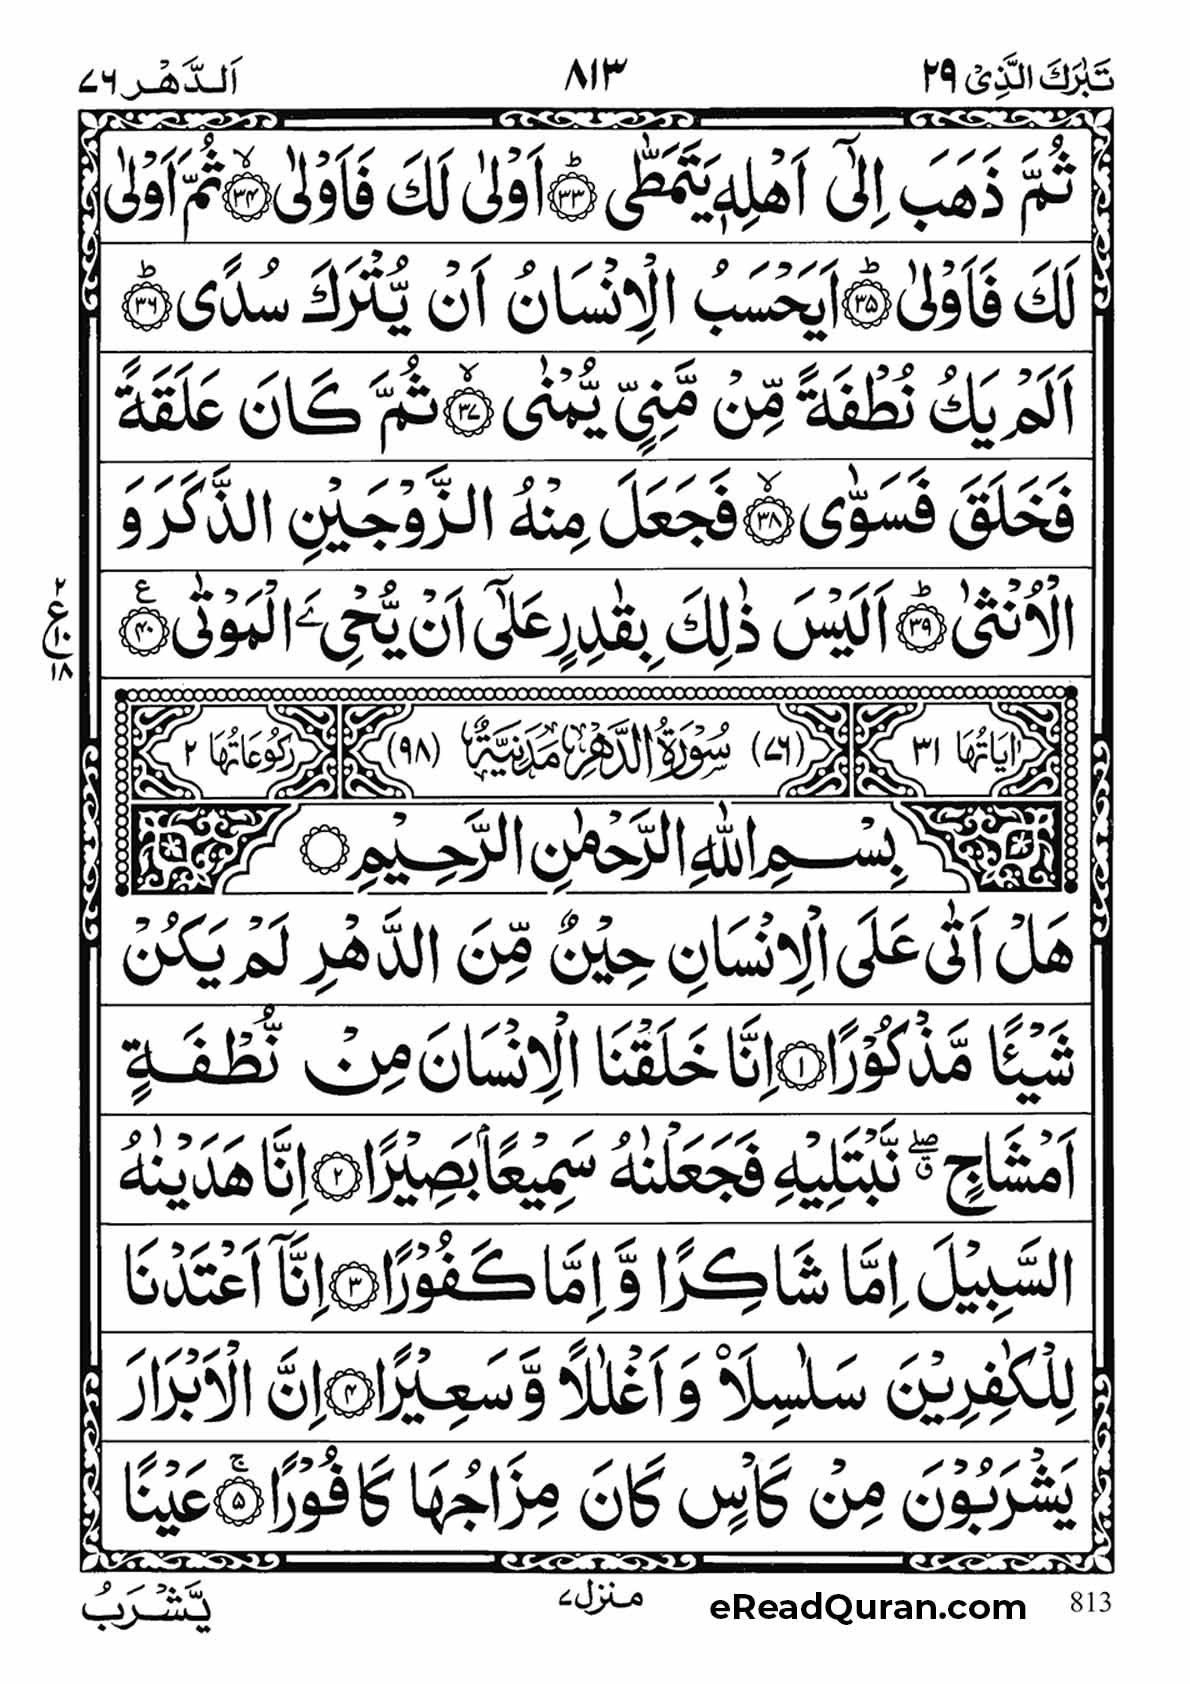 تَبٰرَكَ الَّذِیْ ٢٩ ٨١٣ اَلدَّهْر ٧٦
ثُمَّ ذَهَبَ اِلٰۤى اَهْلِهٖ یَتَمَطّٰى ؕ﴿۳۳﴾ اَوْلٰى لَكَ فَاَوْلٰى ۙ﴿۳۴﴾ ثُمَّ اَوْلٰى
لَكَ فَاَوْلٰى ؕ﴿۳۵﴾ اَیَحْسَبُ الْاِنْسَانُ اَنْ یُّتْرَكَ سُدًى ؕ﴿۳۶﴾
اَلَمْ یَكُ نُطْفَةً مِّنْ مَّنِیٍّ یُّمْنٰى ۙ﴿۳۷﴾ ثُمَّ كَانَ عَلَقَةً
فَخَلَقَ فَسَوّٰى ۙ﴿۳۸﴾ فَجَعَلَ مِنْهُ الزَّوْجَیْنِ الذَّكَرَ وَ
الْاُنْثٰى ؕ﴿۳۹﴾ اَلَیْسَ ذٰلِكَ بِقٰدِرٍ عَلٰۤى اَنْ یُّحْیِۦَ الْمَوْتٰى ﴿۴۰﴾ع
٢ ع ١٠ ١٨
اٰیَاتُهَا ٣١ (٧٦) سُوْرَةُ الدَّهْرِ مَدَنِیَّةٌ (٩٨) رُكُوْعَاتُهَا ٢
بِسْمِ اللّٰهِ الرَّحْمٰنِ الرَّحِیْمِ
هَلْ اَتٰى عَلَى الْاِنْسَانِ حِیْنٌ مِّنَ الدَّهْرِ لَمْ یَكُنْ
شَیْـًٔا مَّذْكُوْرًا ﴿۱﴾ اِنَّا خَلَقْنَا الْاِنْسَانَ مِنْ نُّطْفَةٍ
اَمْشَاجٍ ۖۗ نَّبْتَلِیْهِ فَجَعَلْنٰهُ سَمِیْعًۢا بَصِیْرًا ﴿۲﴾ اِنَّا هَدَیْنٰهُ
السَّبِیْلَ اِمَّا شَاكِرًا وَّ اِمَّا كَفُوْرًا ﴿۳﴾ اِنَّاۤ اَعْتَدْنَا
لِلْكٰفِرِیْنَ سَلٰسِلَاۡ وَ اَغْلٰلًا وَّ سَعِیْرًا ﴿۴﴾ اِنَّ الْاَبْرَارَ
یَشْرَبُوْنَ مِنْ كَاْسٍ كَانَ مِزَاجُهَا كَافُوْرًا ۚ﴿۵﴾ عَیْنًا
813 eReadQuran.com منزل ٧ یَّشْرَبُ